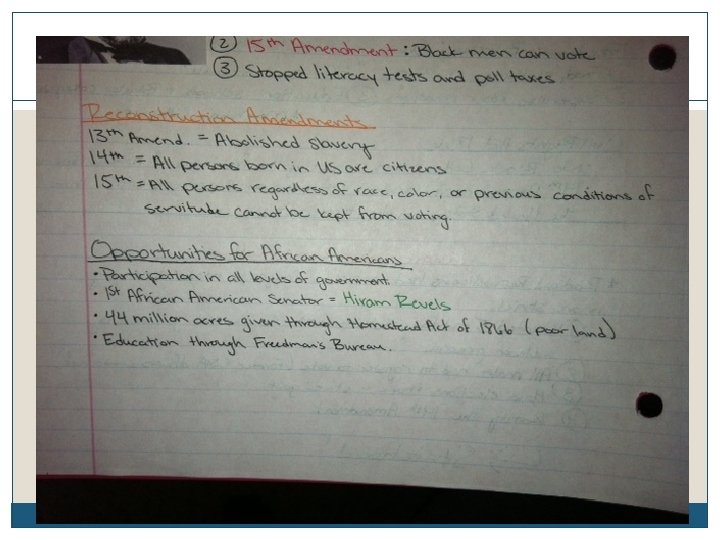 ② 15th Amendment: Black men can vote
③ Stopped literacy tests and poll taxes
Reconstruction Amendments
13th Amend. = Abolished slavery
14th = All persons born in US are citizens
15th = All persons regardless of race, color, or previous conditions of
servitude cannot be kept from voting.
Opportunities for African Americans
• Participation in all levels of government.
• 1st African American Senator = Hiram Revels
• 44 million acres given through Homestead Act of 1866 (poor land)
• Education through Freedman's Bureau.